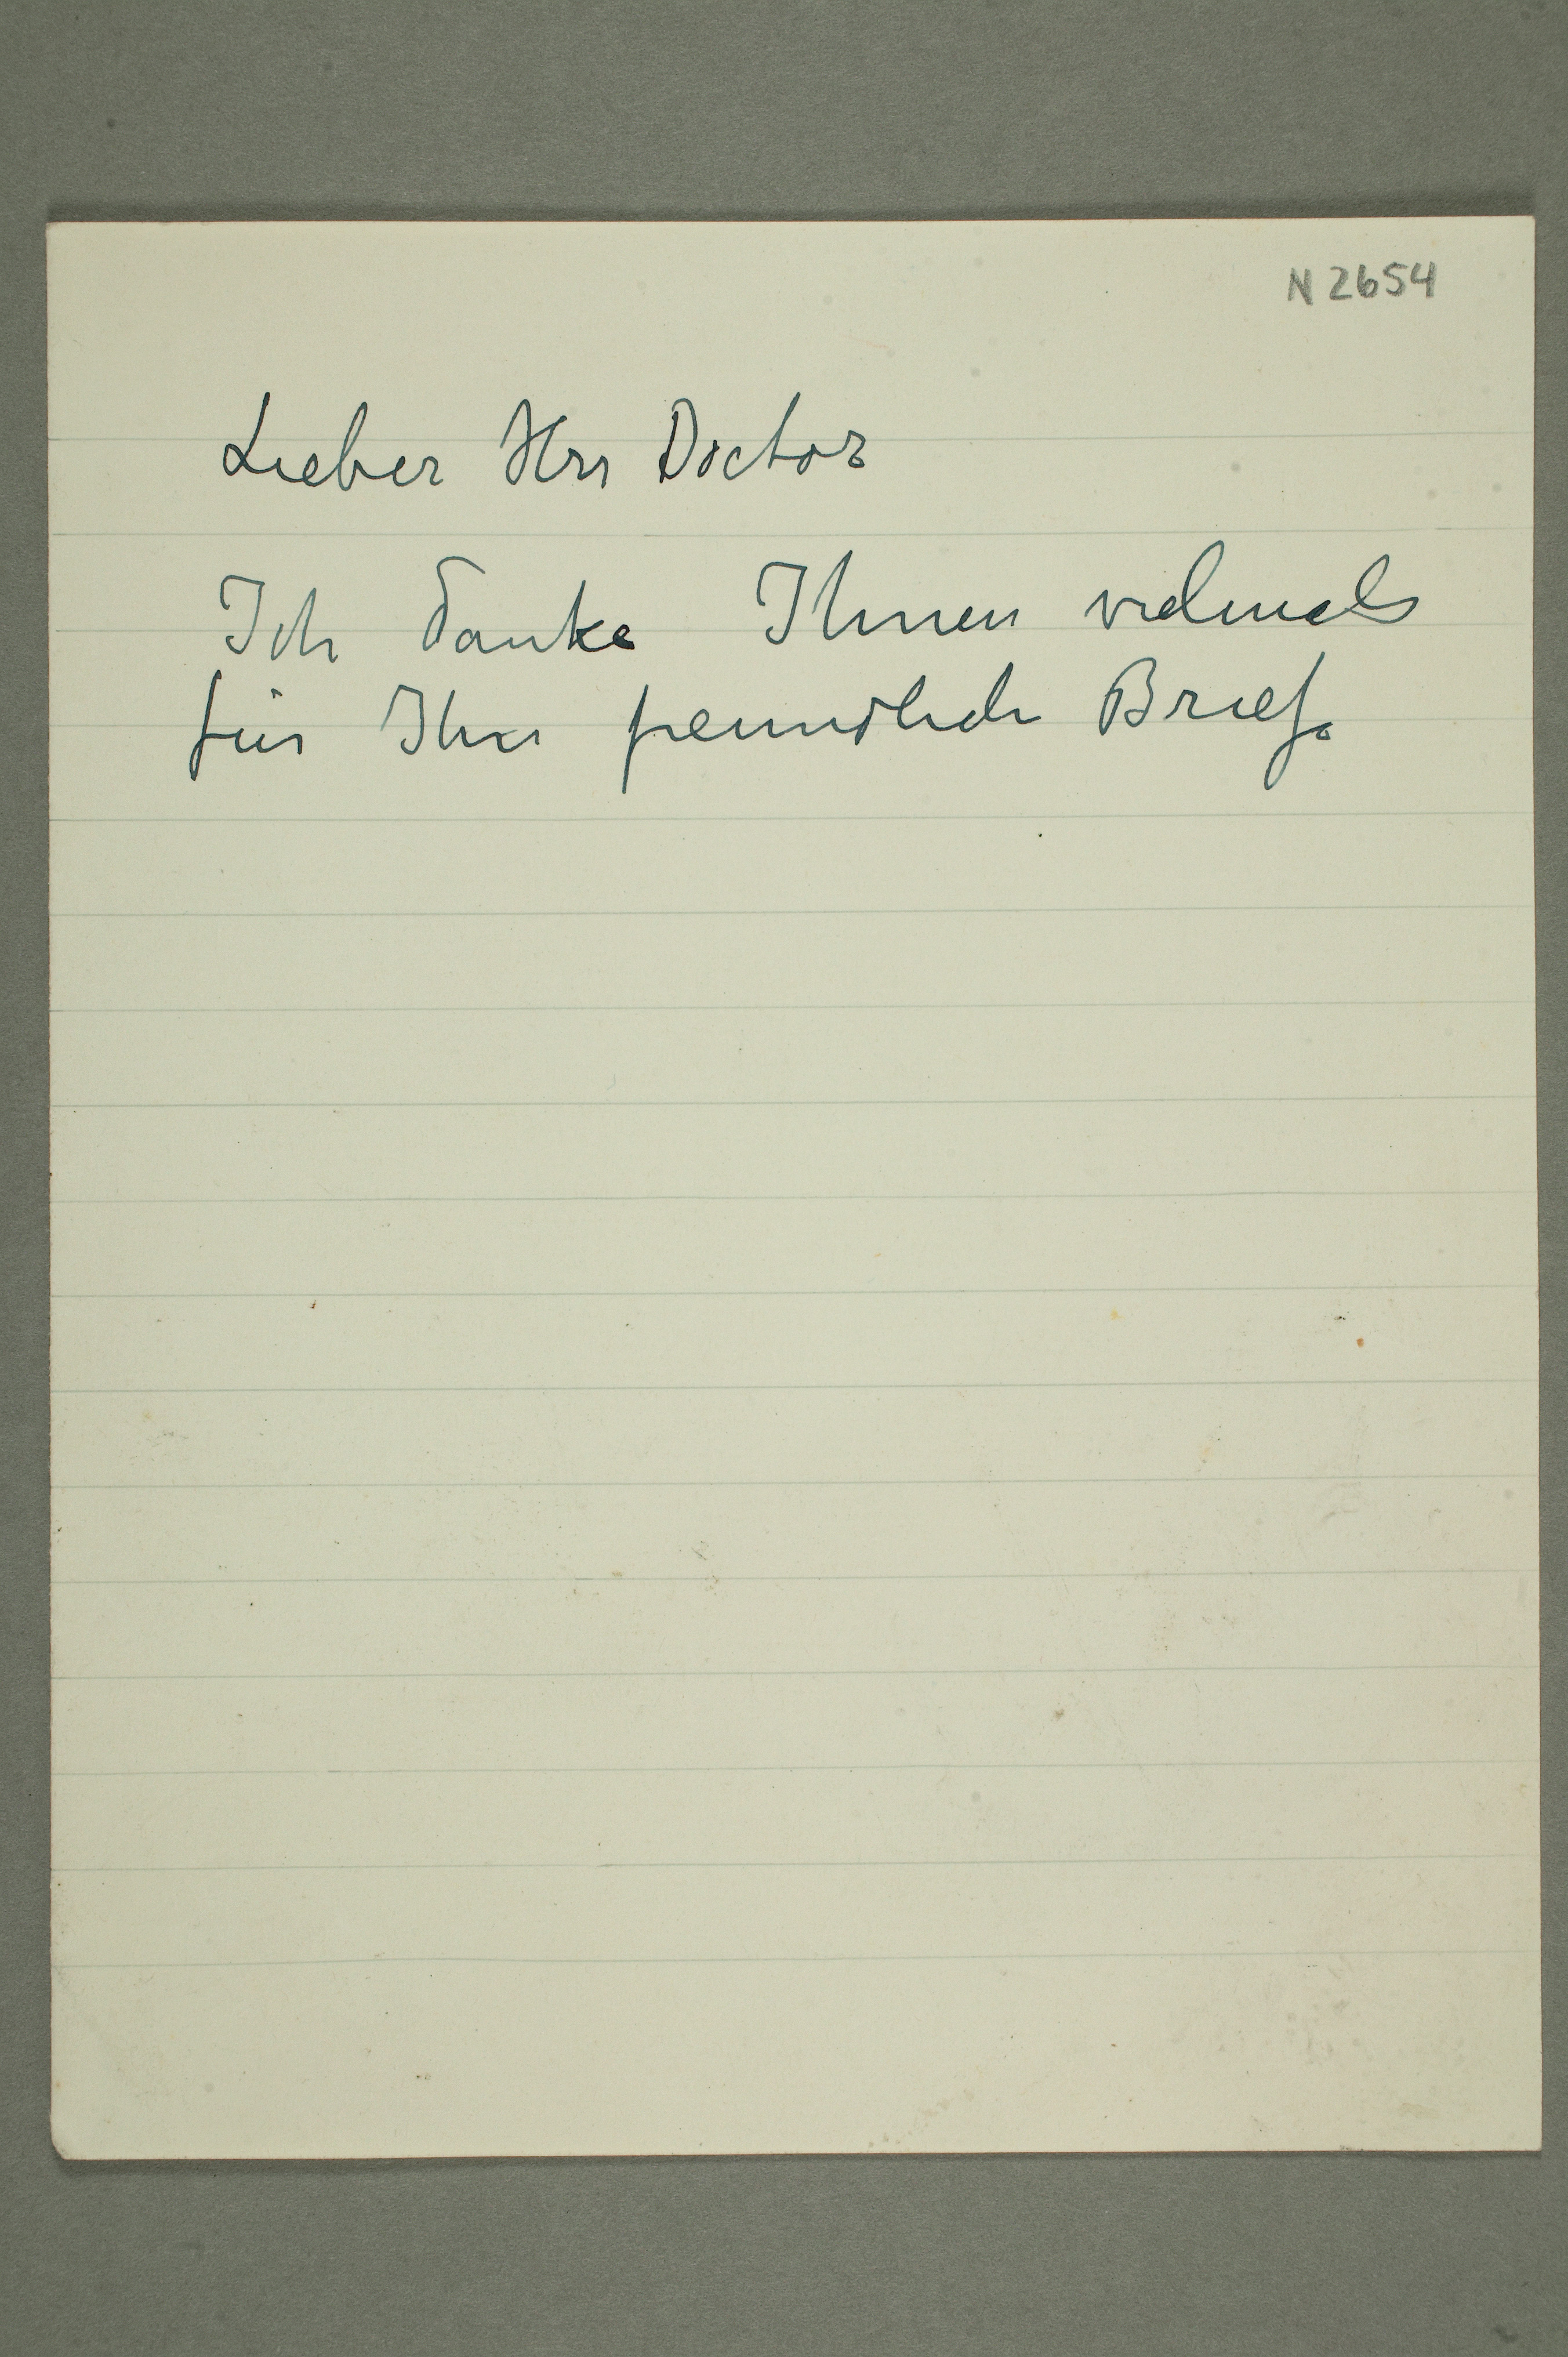 N 2654
Lieber Hrr Doctor
Ich danke Ihnen vielmals
für Ihren freundlichen Brief.